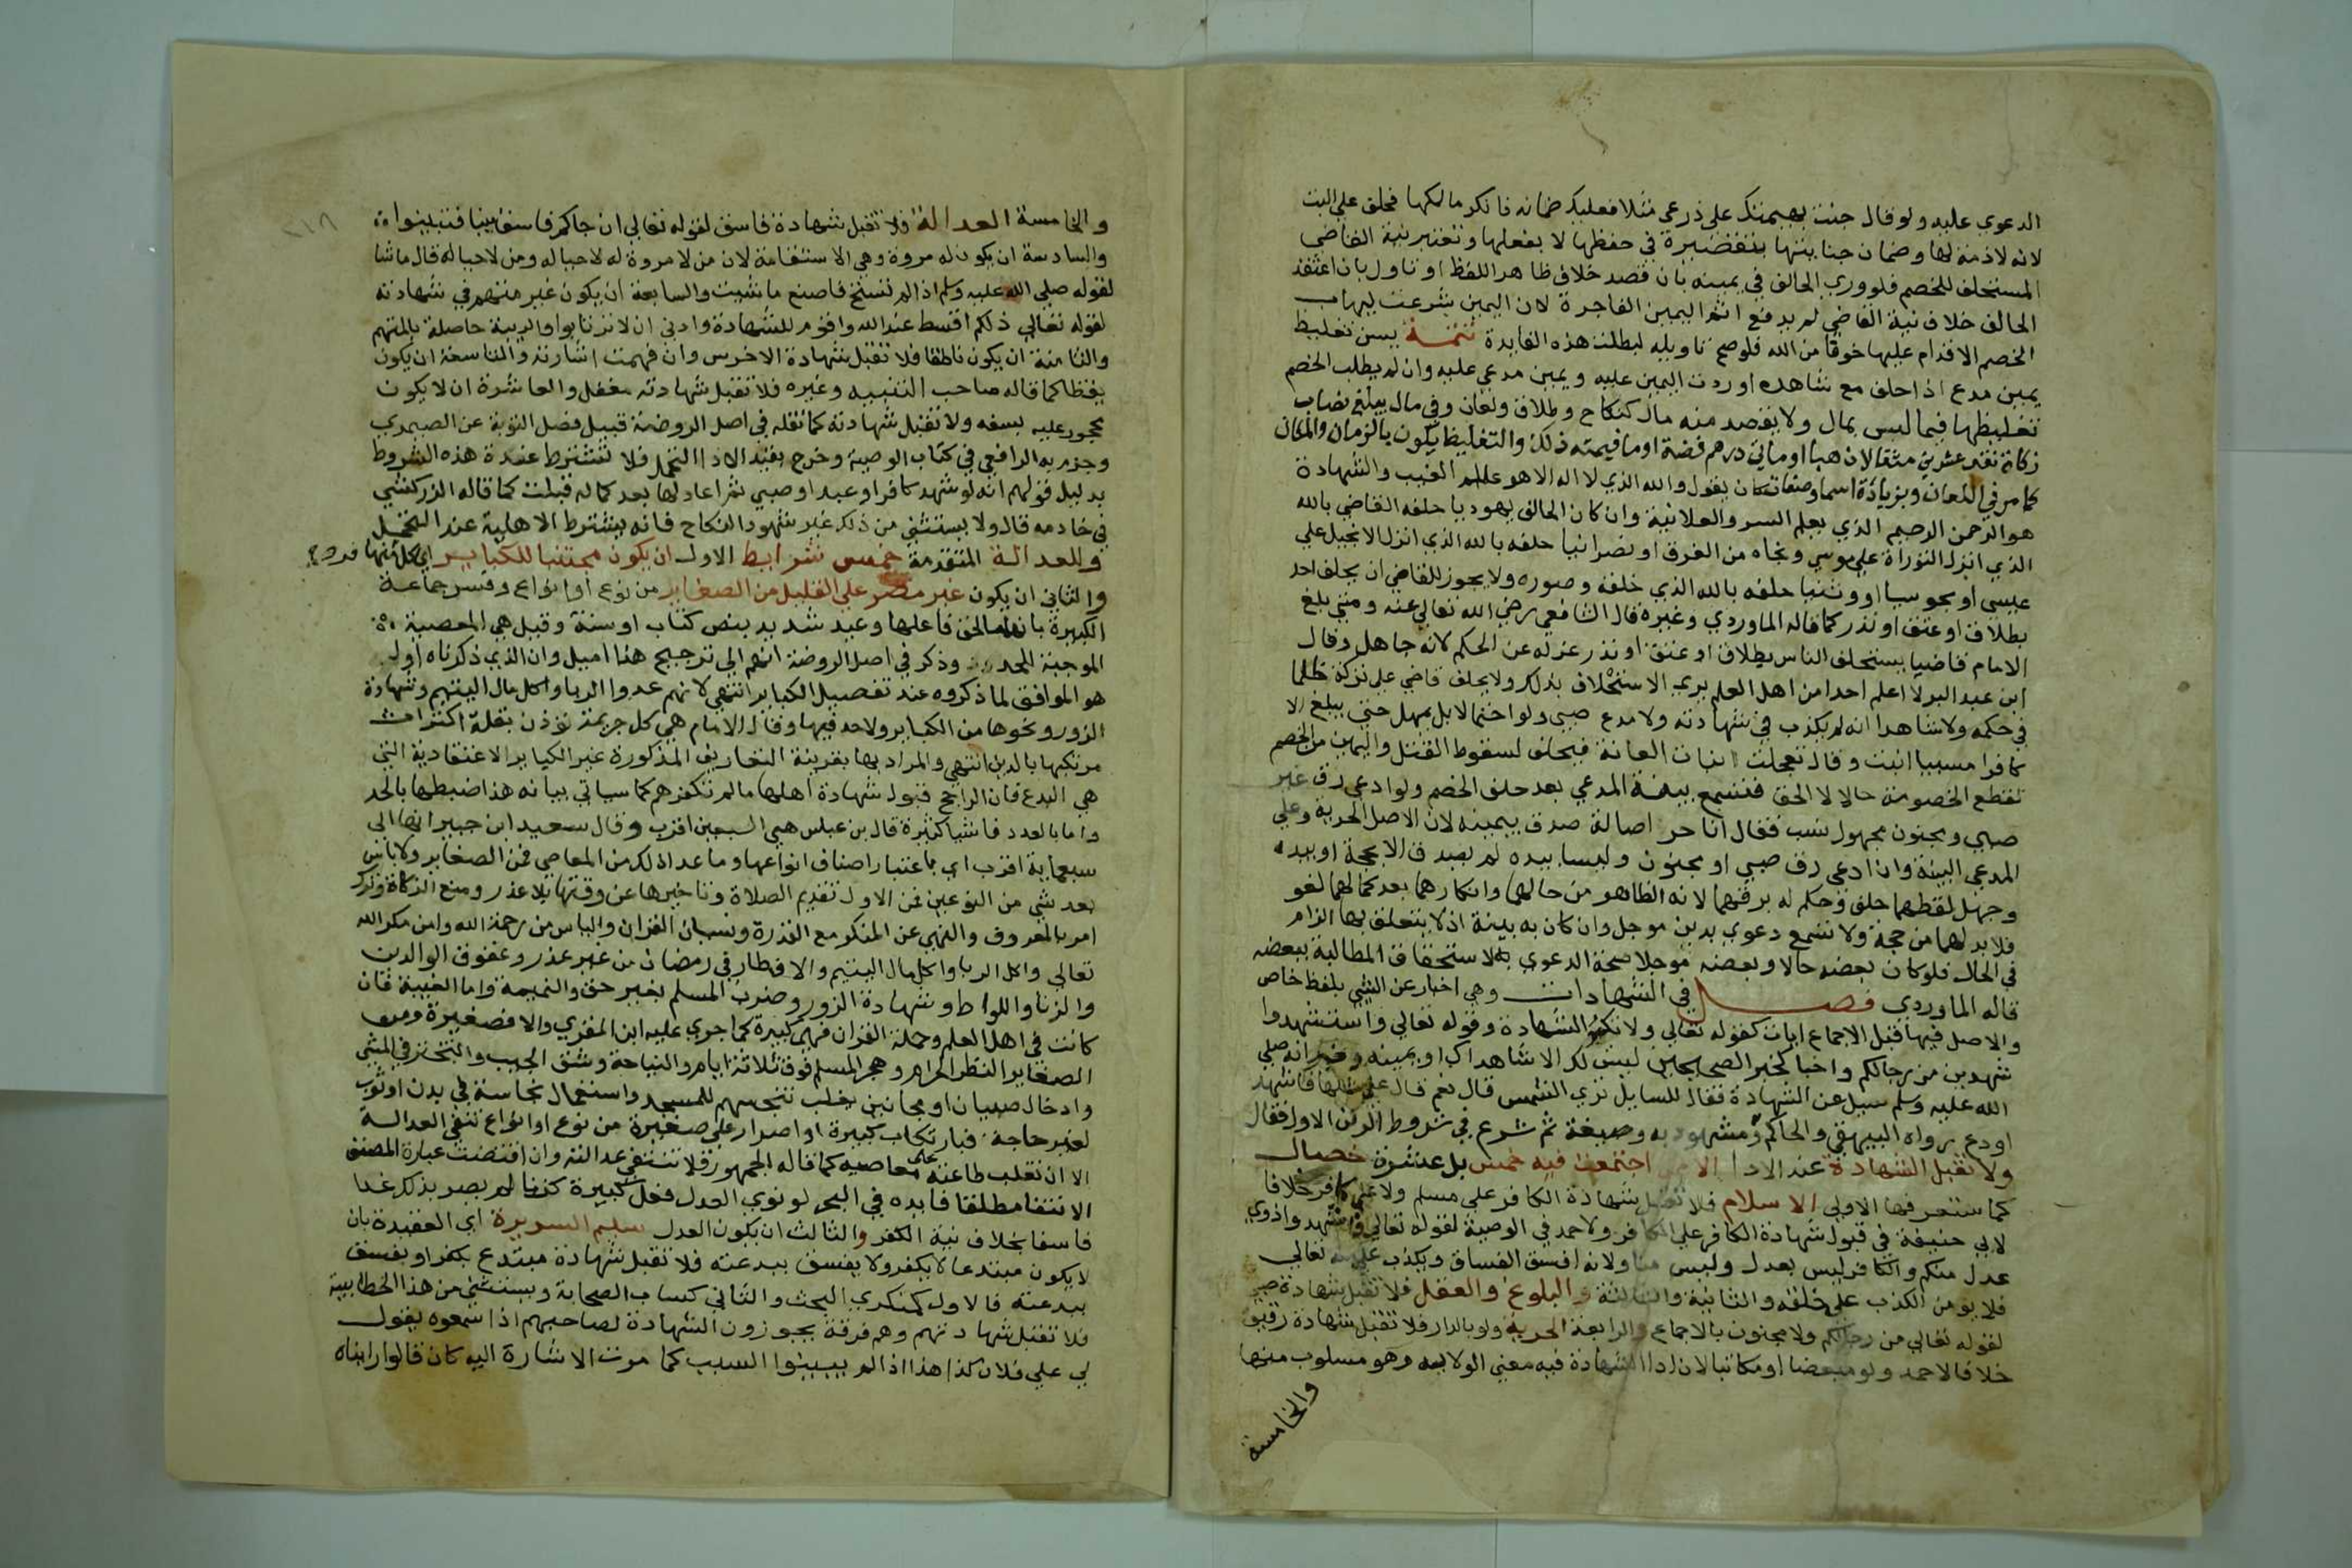 الدعوي عليه ولو قال جنت بهيمتك على زرعي مثلا فعليك ضمانه فانكر مالكها فحلف على البت
لانه لا ذمة لها وضمان جنايتها بتقصيره في حفظها لا بفعلها وتعتبر نية القاضي
المستحلف للخصم فلو وري الحالف في يمينه بان قصد خلاف ظاهر اللفظ او تاول بان اعتقد
الحالف خلاف نية القاضي لم يدفع اثم اليمين الفاجرة لان اليمين شرعت ليهاب
الخصم الاقدام عليها خوفا من الله فلو صح تاويله لبطلت هذه الفايدة تتمة يسن تغليظ
يمين مدع اذا حلف مع شاهده او ردت اليمين عليه ويمين مدعي عليه وان لم يطلب الخصم
تغليظها فيما ليس بمال ولا يقصد منه مال كنكاح وطلاق ولعان وفي مال يبلغ نصاب
زكاة نقد عشرين مثقالا ذهبا او مائتي درهم فضة او ما قيمته ذلك والتغليظ يكون بالزمان والمكان
كما مر في اللعان وبزيادة اسما وصفات كان يقول والله الذي لا اله الا هو عالم الغيب والشهادة
هو الرحمن الرحيم الذي يعلم السر والعلانية وان كان الحالف يهوديا حلفه القاضي بالله
الذي انزل التوراة على موسي ونجاه من الغرق او نصرانيا حلفه بالله الذي انزل الانجيل علي
عيسي او مجوسيا او وثنيا حلفه بالله الذي خلقه وصوره ولا يجوز للقاضي ان يحلف احد
بطلاق او عتق او نذر كما قاله الماوردي وغيره قال الشافعي رضي الله تعالي عنه ومتي بلغ
الامام قاضيا يستحلف الناس بطلاق او عتق او نذر عزله عن الحكم لانه جاهل وقال
ابن عبد البر لا اعلم احدا من اهل العلم يري الاستحلاف بذلك ولا يحلف قاضي على تركه ظلما
في حكمه ولا شاهدا انه لم يكذب في شهادته ولا مدع صبي ولو احتمالا بل يمهل حتي يبلغ الا
كافرا مسبيا انبت وقال تعجلت انبات العانة فيحلف لسقوط القتل واليمين من الخصم
تقطع الخصومة حالا لا الحق فتسمع بينة المدعي بعد حلف الخصم ولو ادعي رق غير
صبي ومجنون مجهول نسب فقال انا حر اصالة صدق بيمينه لان الاصل الحرية وعلي
المدعي البينة وان ادعي رق صبي او مجنون وليسا بيده لم يصدق الا بحجة او بيده
وجهل لقطهما حلف وحكم له برقهما لانه الظاهر من حالهما وانكارهما بعد كمالهما لغو
فلا بد لهما من حجة ولا تسمع دعوي بدين موجل وان كان به بينة اذ لا يتعلق بها الزام
في الحال فلو كان بعضه حالا وبعضه موجلا صحة الدعوي به لاستحقاق المطالبة ببعضه
قاله الماوردي فصل في الشهادات وهي اخبار عن الشي بلفظ خاص
والاصل فيها قبل الاجماع ايات كقوله تعالي ولا تكتموا الشهادة وقوله تعالي واستشهدوا
شهيدين من رجالكم واخبار كخبر الصحيحين ليس لك الا شاهداك او يمينه وخبر انه صلي
الله عليه وسلم سيل عن الشهادة فقال للسايل تري الشمس قال نعم قال علي مثلها فاشهد
او دع رواه البيهقي والحاكم ومشهود به وصيغة ثم شرع في شروط الركن الاول فقال
ولا تقبل الشهادة عند الادا الا من اجتمعت فيه خمس بل عشرة خصال
كما ستعرفها الاولي الاسلام فلا تقبل شهادة الكافر علي مسلم ولا علي كافر خلافا
لابي حنيفة في قبول شهادة الكافر علي الكافر ولاحمد في الوصية لقوله تعالي واشهدوا ذوي
عدل منكم والكافر ليس بعدل وليس منا ولانه افسق الفساق ويكذب علي الله تعالي
فلا يومن الكذب علي خلقه والثانية والثالثة والبلوغ والعقل فلا تقبل شهادة صبي
لقوله تعالي من رجالكم ولا مجنون بالاجماع والرابعة الحرية ولو بالدار فلا تقبل شهادة رقيق
خلافا لاحمد ولو مبعضا او مكاتبا لان ادا الشهادة فيه معني الولاية وهو مسلوب منها
والخامسة
والخامسة العدالة فلا تقبل شهادة فاسق لقوله تعالي ان جاكم فاسق بنبا فتبينوا
والسادسة ان يكون له مروة وهي الاستقامة لان من لا مروة له لا حيا له ومن لا حيا له قال ما شا
لقوله صلى الله عليه وسلم اذا لم تستح فاصنع ما شيت والسابعة ان يكون غير متهم في شهادته
لقوله تعالي ذلكم اقسط عند الله واقوم للشهادة وادني ان لا ترتابوا والريبة حاصلة بالمتهم
والثامنة ان يكون ناطقا فلا تقبل شهادة الاخرس وان فهمت اشارته والتاسعة ان يكون
يقظا كما قاله صاحب التنبيه وغيره فلا تقبل شهادته مغفل والعاشرة ان لا يكون
محجور عليه بسفه ولا تقبل شهادته كما نقله في اصل الروضة قبيل فصل التوبة عن الصيمري
وجزم به الرافعي في كتاب الوصية وخرج بقيد الادا التحمل فلا تشترط عنده هذه الشروط
بدليل قولهم انه لو شهد كافر او عبد او صبي ثم اعادها بعد كماله قبلت كما قاله الزركشي
في خادمه قال ولا يستثني من ذلك غير شهود النكاح فانه يشترط الاهلية عند التحمل
وللعدالة المتقدمة خمس شرايط الاول ان يكون مجتنبا للكباير اي كل منها
والثاني ان يكون غير مصر على القليل من الصغاير من نوع او انواع وفسر جماعة
الكبيرة بانها ما لحق فاعلها وعيد شديد بنص كتاب او سنة وقيل هي المعصية
الموجبة للحد وذكر في اصل الروضة انهم الي ترجيح هذا اميل وان الذي ذكرناه اولا
هو الموافق لما ذكروه عند تفصيل الكباير انتهي لانهم عدوا الربا واكل مال اليتيم وشهادة
الزور ونحوها من الكباير ولا حد فيها وقال الامام هي كل جريمة توذن بقلة اكتراث
مرتكبها بالدين انتهي والمراد بها بقرينة التعاريف المذكورة غير الكباير الاعتقادية التي
هي البدع فان الراجح قبول شهادة اهلها ما لم نكفرهم كما سياتي بيانه هذا ضبطها بالحد
واما بالعدد فاشيا كثيرة قال بن عباس هي الي السبعين اقرب وقال سعيد ابن جبير انها الي
سبعماية اقرب اي باعتبار اصناف انواعها وما عدا ذلك من المعاصي فمن الصغاير ولا باس
بعد شي من النوعين فمن الاول تقديم الصلاة وتاخيرها عن وقتها بلا عذر ومنع الزكاة وترك
امر بالمعروف والنهي عن المنكر مع القدرة ونسيان القران والياس من رحمة الله وامن مكر الله
تعالي واكل الربا واكل مال اليتيم والافطار في رمضان من غير عذر وعقوق الوالدين
والزنا واللواط وشهادة الزور وضرب المسلم بغير حق والنميمة واما الغيبة فان
كانت في اهل العلم وحملة القران فهي كبيرة كما جري عليه ابن المقري والا فصغيرة ومن
الصغاير النظر الحرام وهجر المسلم فوق ثلاثة ايام والنياحة وشق الجيب والتبختر في المشي
وادخال صبيان او مجانين يغلب تنجيسهم للمسجد واستعمال نجاسة في بدن او ثوب
لغير حاجة فبارتكاب كبيرة او اصرار علي صغيرة من نوع او انواع تنتفي العدالة
الا ان تغلب طاعته على معاصيه كما قاله الجمهور فلا تنتفي عدالته وان اقتضت عبارة المصنف
الانتفا مطلقا فايده في البحر لو نوي العدل فعل كبيرة كزنا لم يصر بذلك غدا
فاسقا بخلاف نية الكفر والثالث ان يكون العدل سليم السريرة اي العقيدة بان
لا يكون مبتدعا لا يكفر ولا يفسق ببدعته فلا تقبل شهادة مبتدع يكفر او يفسق
ببدعته فالاول كمنكري البعث والثاني كساب الصحابة ويستثني من هذا الخطابية
فلا تقبل شهادتهم وهم فرقة يجوزون الشهادة لصاحبهم اذا سمعوه يقول
لي علي فلان كذا هذا اذا لم يبينوا السبب كما مرت الاشارة اليه كان قالوا راينا�